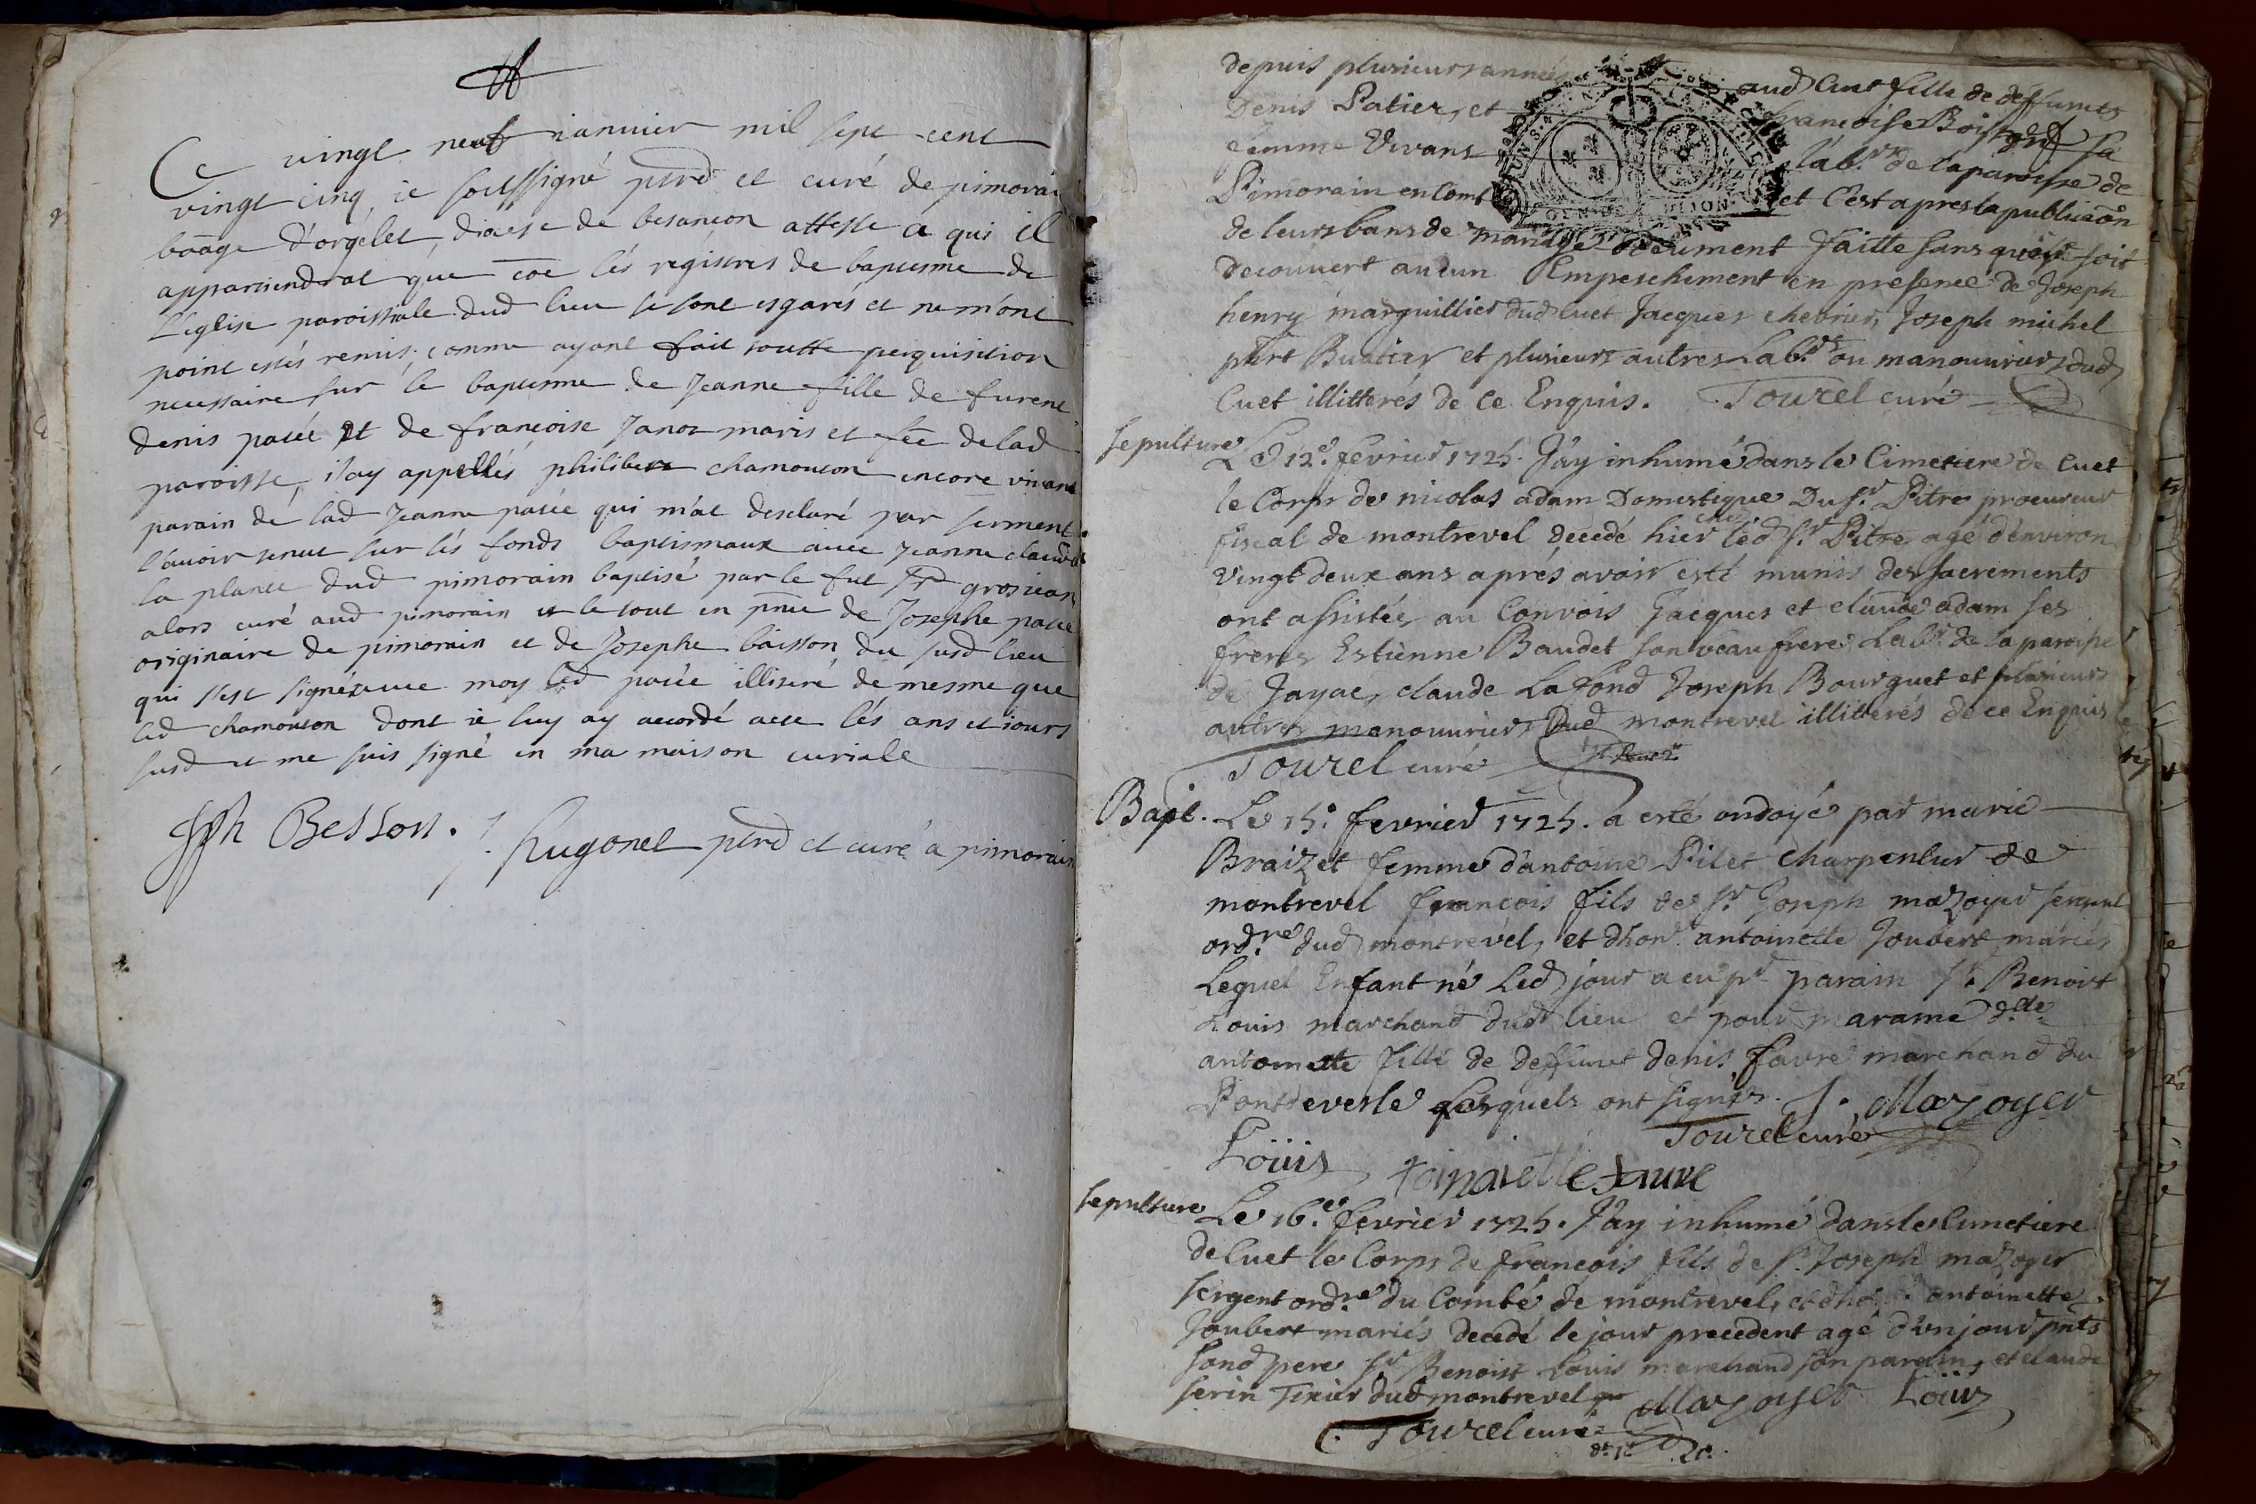 Ce vingt neuf ianuier mil sept cent
vingt cinq, ie soussigné ptrd et curé de pimorain
baage d'orgelet, diocese de besancon atteste a qui il
appartiendrat que coe les registres de baptesme de
l'eglise paroissiale dud lieu se sont esgarés et ne m'ont
point estés remis, comme ayant fait toutte perquisition
necessaire sur le baptesme de Jeanne fille de furent
denis patée et de francoise Janoz maris et fee de lad
paroisse, i'ay appellés philibert chamouton encore vivant
parain de lad Jeanne patée qui m'at desclaré par serment
l'auoir tenut sur lés fonds baptismaux auec Jeanne claud
la plante dud pimorain baptisé par le fut grosiean
alors curé aud pimorain et le tout en pnce de Josephe patée
originaire de pimorain et de Josephe baisson du susd lieu
qui s'est signé auec moy led patée illiteré de mesme que
led chamouton dont ie luy ay accordé acte lés ans et iours
susd et me suis signé en ma maison curiale
Jph Besson. J hugonet ptrd et curé a pimorain
depuis plusieurs années aud Cuet fille de deffuncts
Denis Patier, et francoise Bois sa
femme Vivans lab.rs de la paroisse de
Pimorain en Comt et C'est apres la publicaon
de leurs bans de mariage deüement faitte sans qu'on soit
decouvert aucun Empeschement en presence de Joseph
henry marguillier dud Cuet Jacques chevrier, Joseph michel
Buatier et plusieurs autres Lab.rs ou manouuriers dud
Cuet illitterés de ce Enquis. Tourel curé
sepulture Le 12e. fevrier 1725. J'ay inhumé dans le Cimetiere de Cuet
le Corps de nicolas adam Domestique Du sr. Pitre procureur
fiscal de montrevel decedé hier chez led sr. Pitre agé d'environ
vingt deux ans aprés avoir esté munis des sacrements
ont assistée au Convois Jacques et claude adam ses
freres Estienne Baudet son beaufrere Labr. de la paroisse
de Jayac, claude Lafond Joseph Bourguet et plusieurs
autres manouuriers Dud montrevel illitterés de ce Enquis
Tourel curé
Bapt. Le 15. fevrier 1725. a esté ondoyé par marie
Braizet femme d'antoine Pilet charpentier de
montrevel francois fils de sr. Joseph mazoyer sergent
ord.re dud montrevel, et d'hon. antoinette Joubert mariés
Lequel Enfant né Led jour a eu pr. parain sr. Benoist
Louis marchand dud lieu et pour maraine d.lle
antoinette fille de deffunct denis favre marchand du
Pontdevesle Lesquels ont signés. J. Mazoyer
Tourel curé
Loüis toinaitte faure
sepulture Le 16.e fevrier 1725. J'ay inhumé dans le Cimetiere
de Cuet le Corps de francois fils de sr. Joseph mazoyer
sergent ord.re du Comté de montrevel, et d'hon. antoinette
Joubert mariés decedé le jour precedent agé d'un jour pnts
sond pere sr. Benoist Louis marchand son parain, et claude
serin Tixier dud montrevel Mazoyer Loüis
Tourel curé